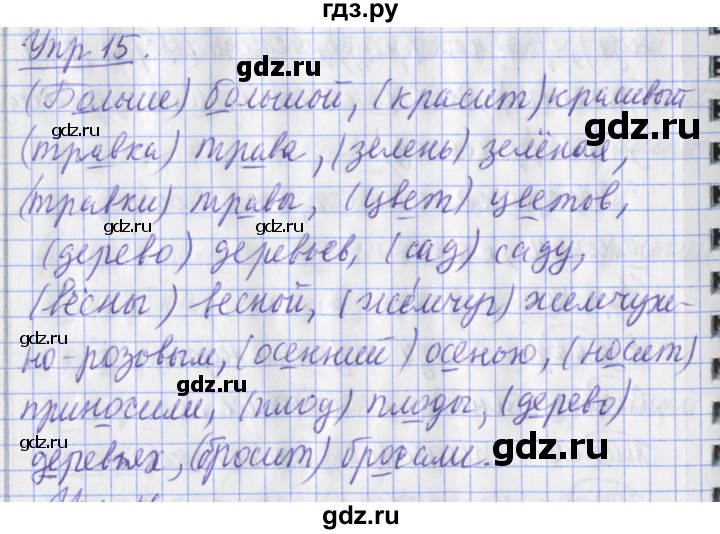 гдз.ру
Упр. 15.
gdz.ru
(Больше) большой, (красит) красивый
gdz.ru
gdz.ru
(травка) трава, (зелень) зелёная,
(травки) травы, (цвет) цветов,
gdz.ru
gdz.ru
(дерево) деревьев, (сад) саду,
(вёсны) весной, (жемчуг) жемчуж-
gdz.ru
gdz.ru
но-розовым, (осенний) осенью, (носит)
gdz.ru
приносили, (плод) плоды, (дерево)
gdz.ru
gdz.ru
деревьях, (бросит) бросали.
gdz.ru